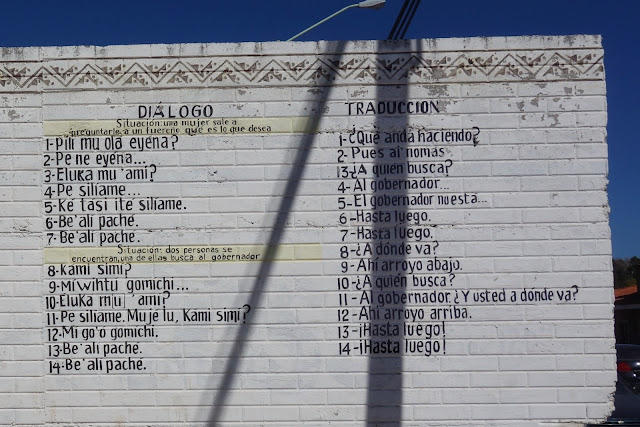 DIALOGO
Situación: una mujer sale a
preguntarle a un fuereño que es lo que desea
1-Pili mu ola eyena?
2-Pe ne eyena...
3-Eluka mu 'ami?
4-Pe siliame...
5-Ke tasi ite siliame.
6-Be'ali paché.
7-Be'ali paché.
Situación: dos personas se
encuentran, una de ellas busca al gobernador
8-Kami simi?
9-Mi'wihtu gomichi...
10-Eluka mu 'ami?
11-Pe siliame. Muje lu, Kami simi?
12-Mi go'o gomichi.
13-Be'ali paché.
14-Be'ali paché.
TRADUCCION
1-¿Qué anda haciendo?
2-Pues aí nomás.
13-¿A quién busca?
4-Al gobernador...
5-El gobernador no esta...
6-Hasta luego.
7-Hasta luego.
8-¿A dónde va?
9-Ahí arroyo abajo.
10-¿A quién busca?
11-Al gobernador. ¿Y usted a dónde va?
12-Ahí arroyo arriba.
13-¡Hasta luego!
14-¡Hasta luego!